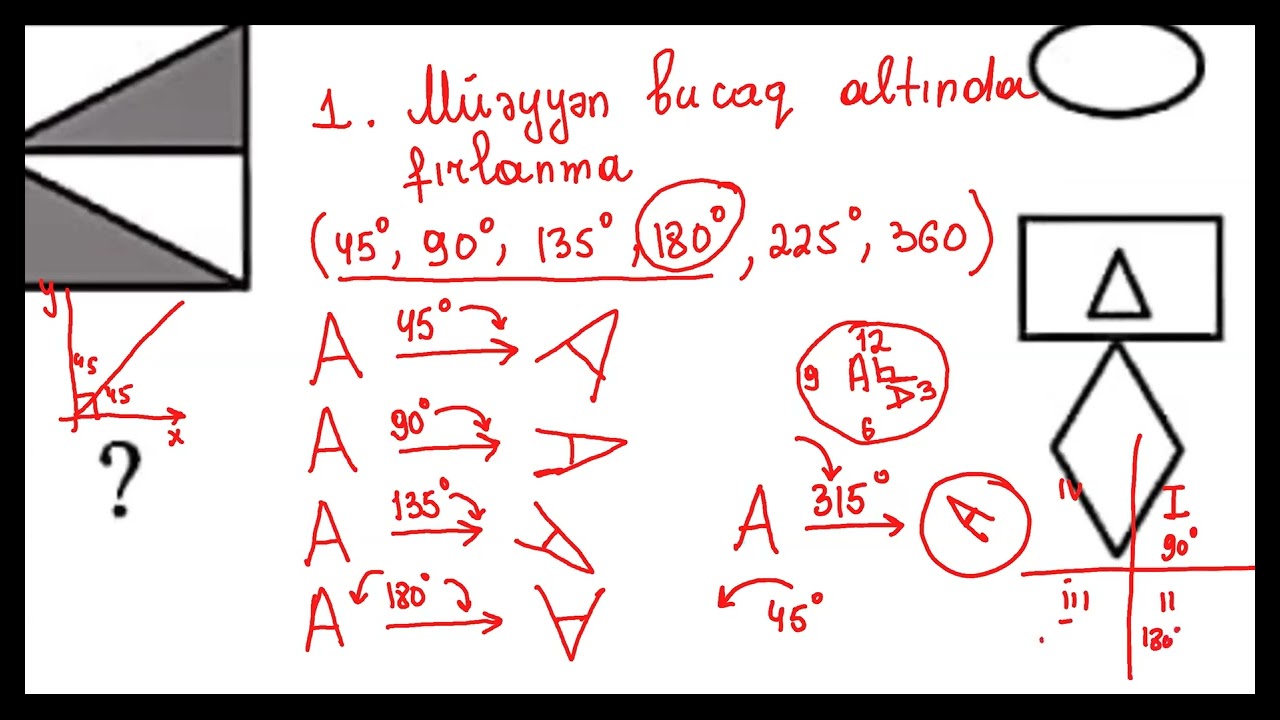 1. Müəyyən bucaq altında
fırlanma
(45°, 90°, 135°, 180°, 225°, 360)
y
45
45
x
?
A 45° A
A 90° A
A 135° A
A 180° A
12
9 A A 3
6
A 315° A
45°
IV I
90°
iii II
180°